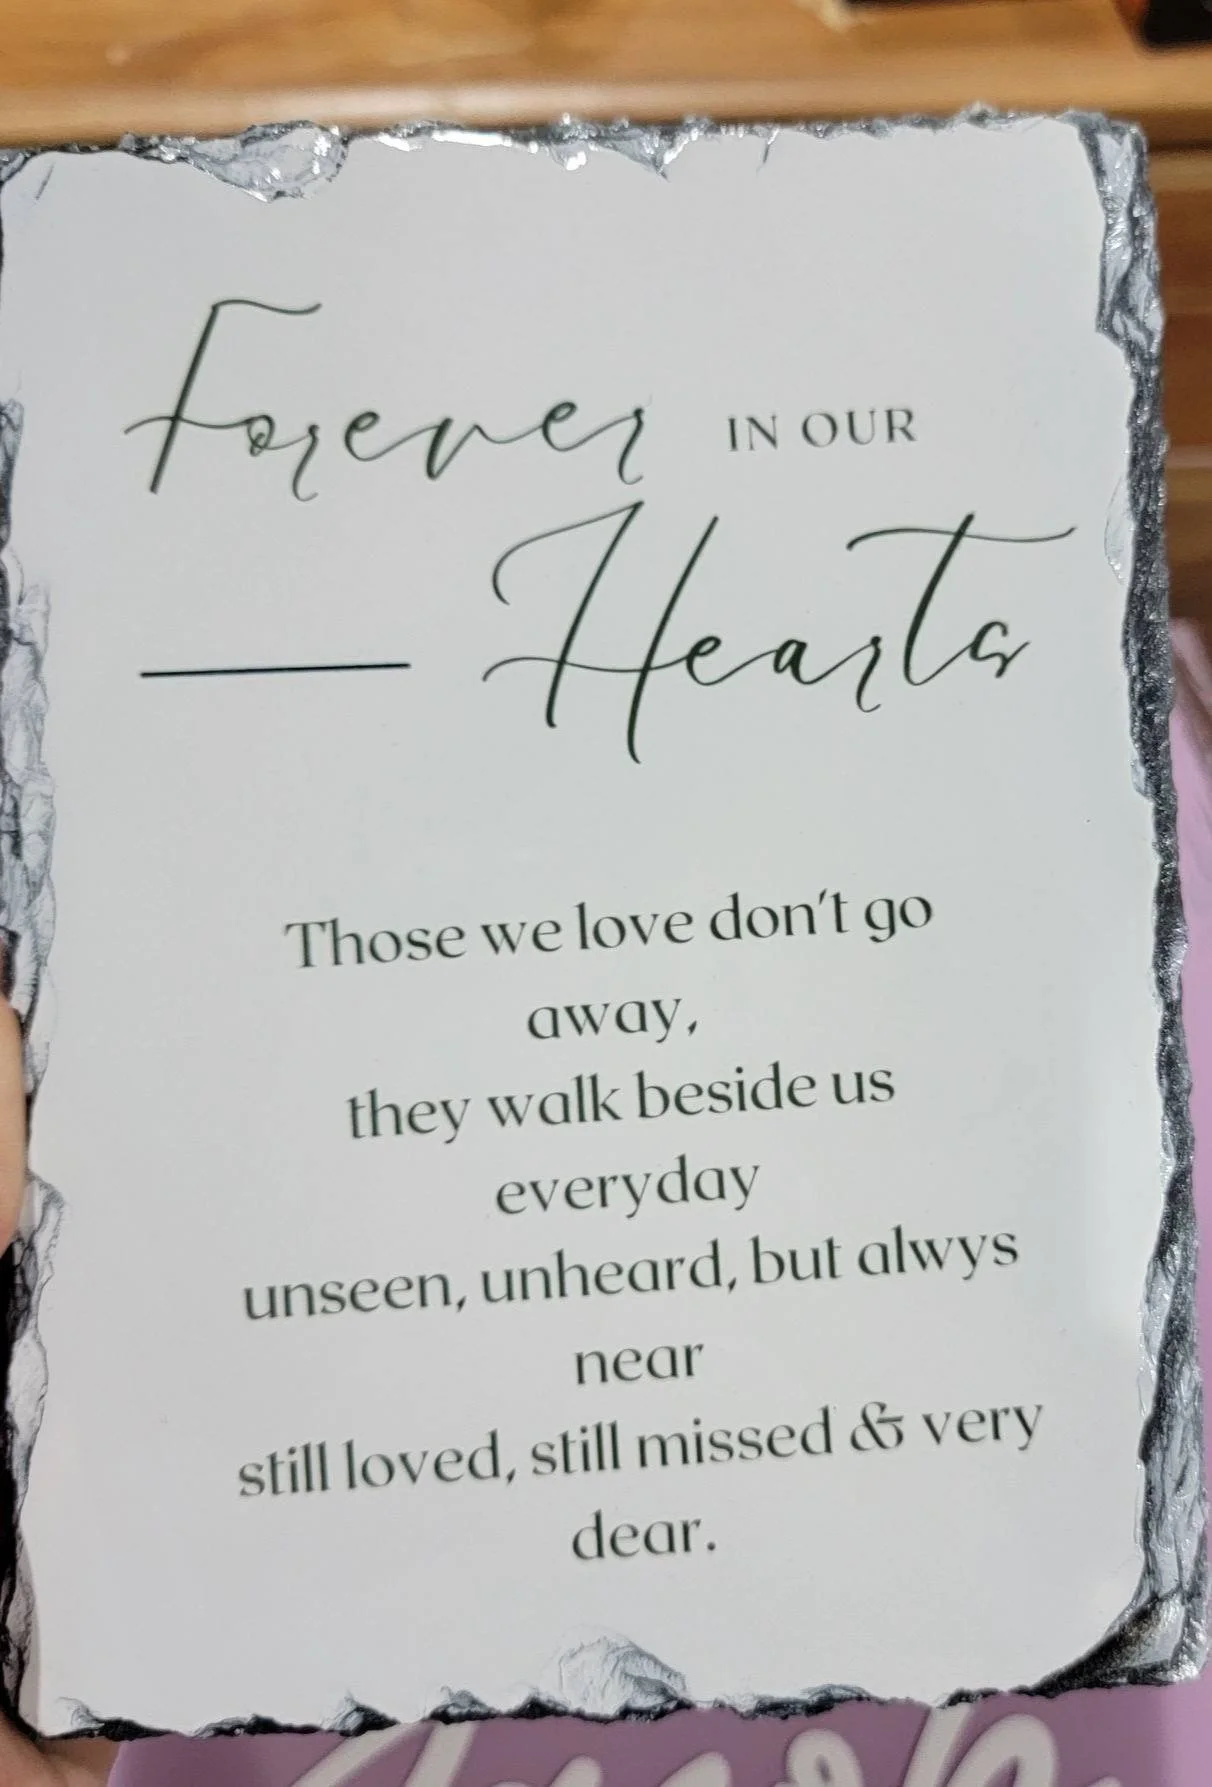 Forever IN OUR
Hearts
Those we love don't go
away,
they walk beside us
everyday
unseen, unheard, but alwys
near
still loved, still missed & very
dear.